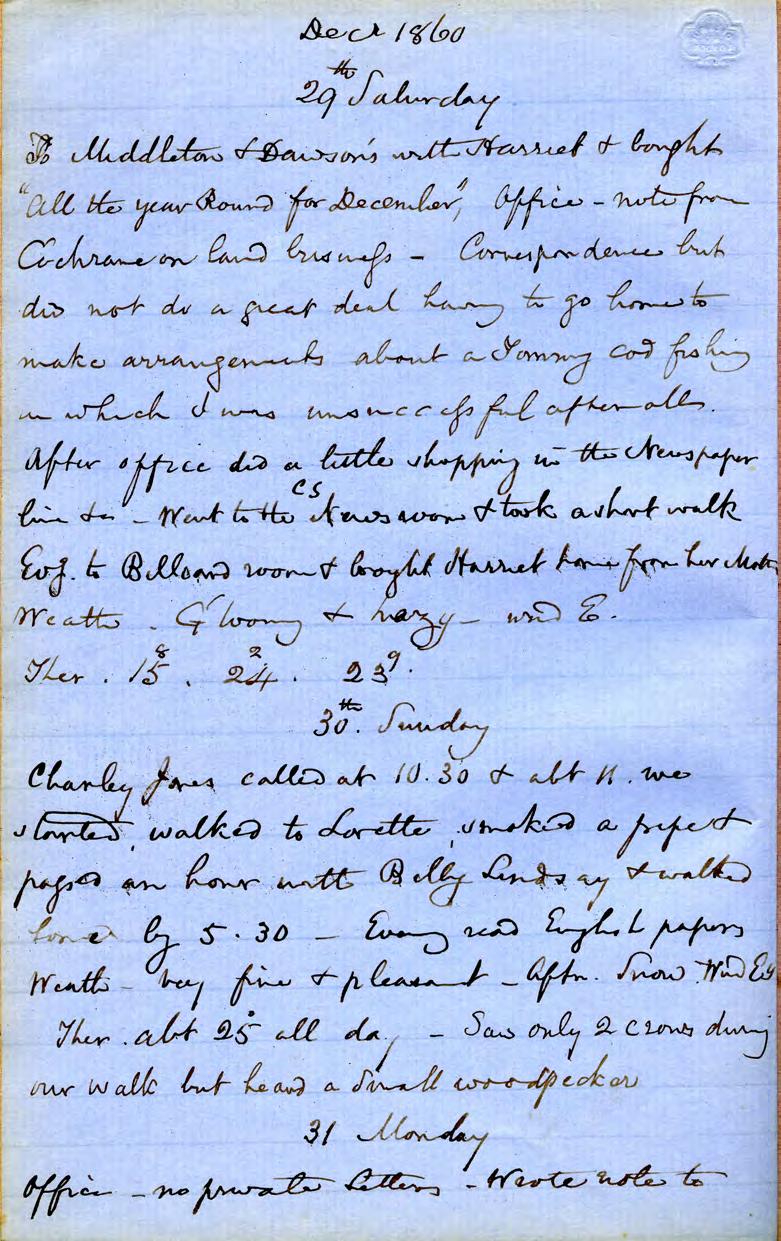 Decr 1860
29th Saturday
To Middleton & Dawson's with Harriet & bought
"All the year Round for December", Office - note from
Cochrane on land business - Correspondence but
did not do a great deal having to go home to
make arrangements about a Tommy cod fishing
in which I was unsuccessful after all.
After office did a little shopping in the Newspaper
line &c - Went to the News room & took a short walk
Evg. to Billiard room & brought Harriet home from her
Weath - Gloomy & hazy - wind E.
Ther. 15 8. 24 2. 23 9.
30th. Sunday
Charley Jones called at 10.30 & abt 11. we
started, walked to Lorette, smoked a pipe &
passed an hour with Billy Lindsay & walked
home by 5.30 - Eveng read English papers
Weath - very fine & pleasant - Aftn. Snow. Wind
Ther. abt 25° all day - Saw only 2 crows during
our walk but heard a small woodpecker
31 Monday
Office - no private letters - Wrote note to